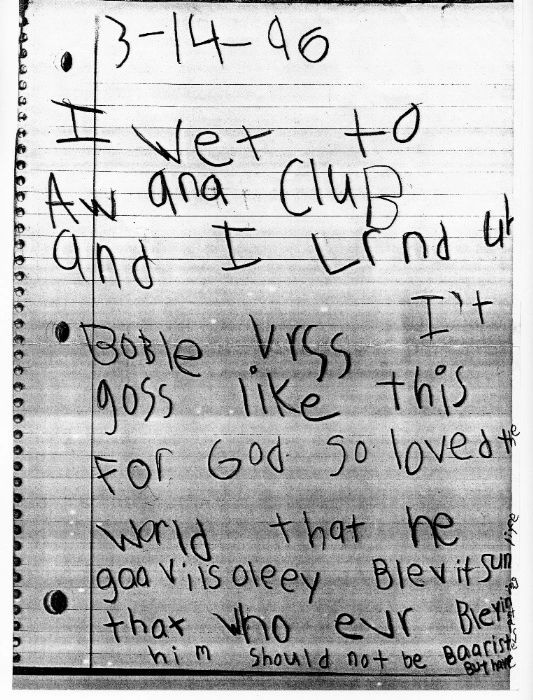 3-14-96
I wet to
Aw ana CluB
and I Lrnd ut
BoBle Vrss I't
goss like this
For God so loved the
world that he
gaa Vils oleey Blevitsun
that who evr Blevin
him should not be Baarist
But have